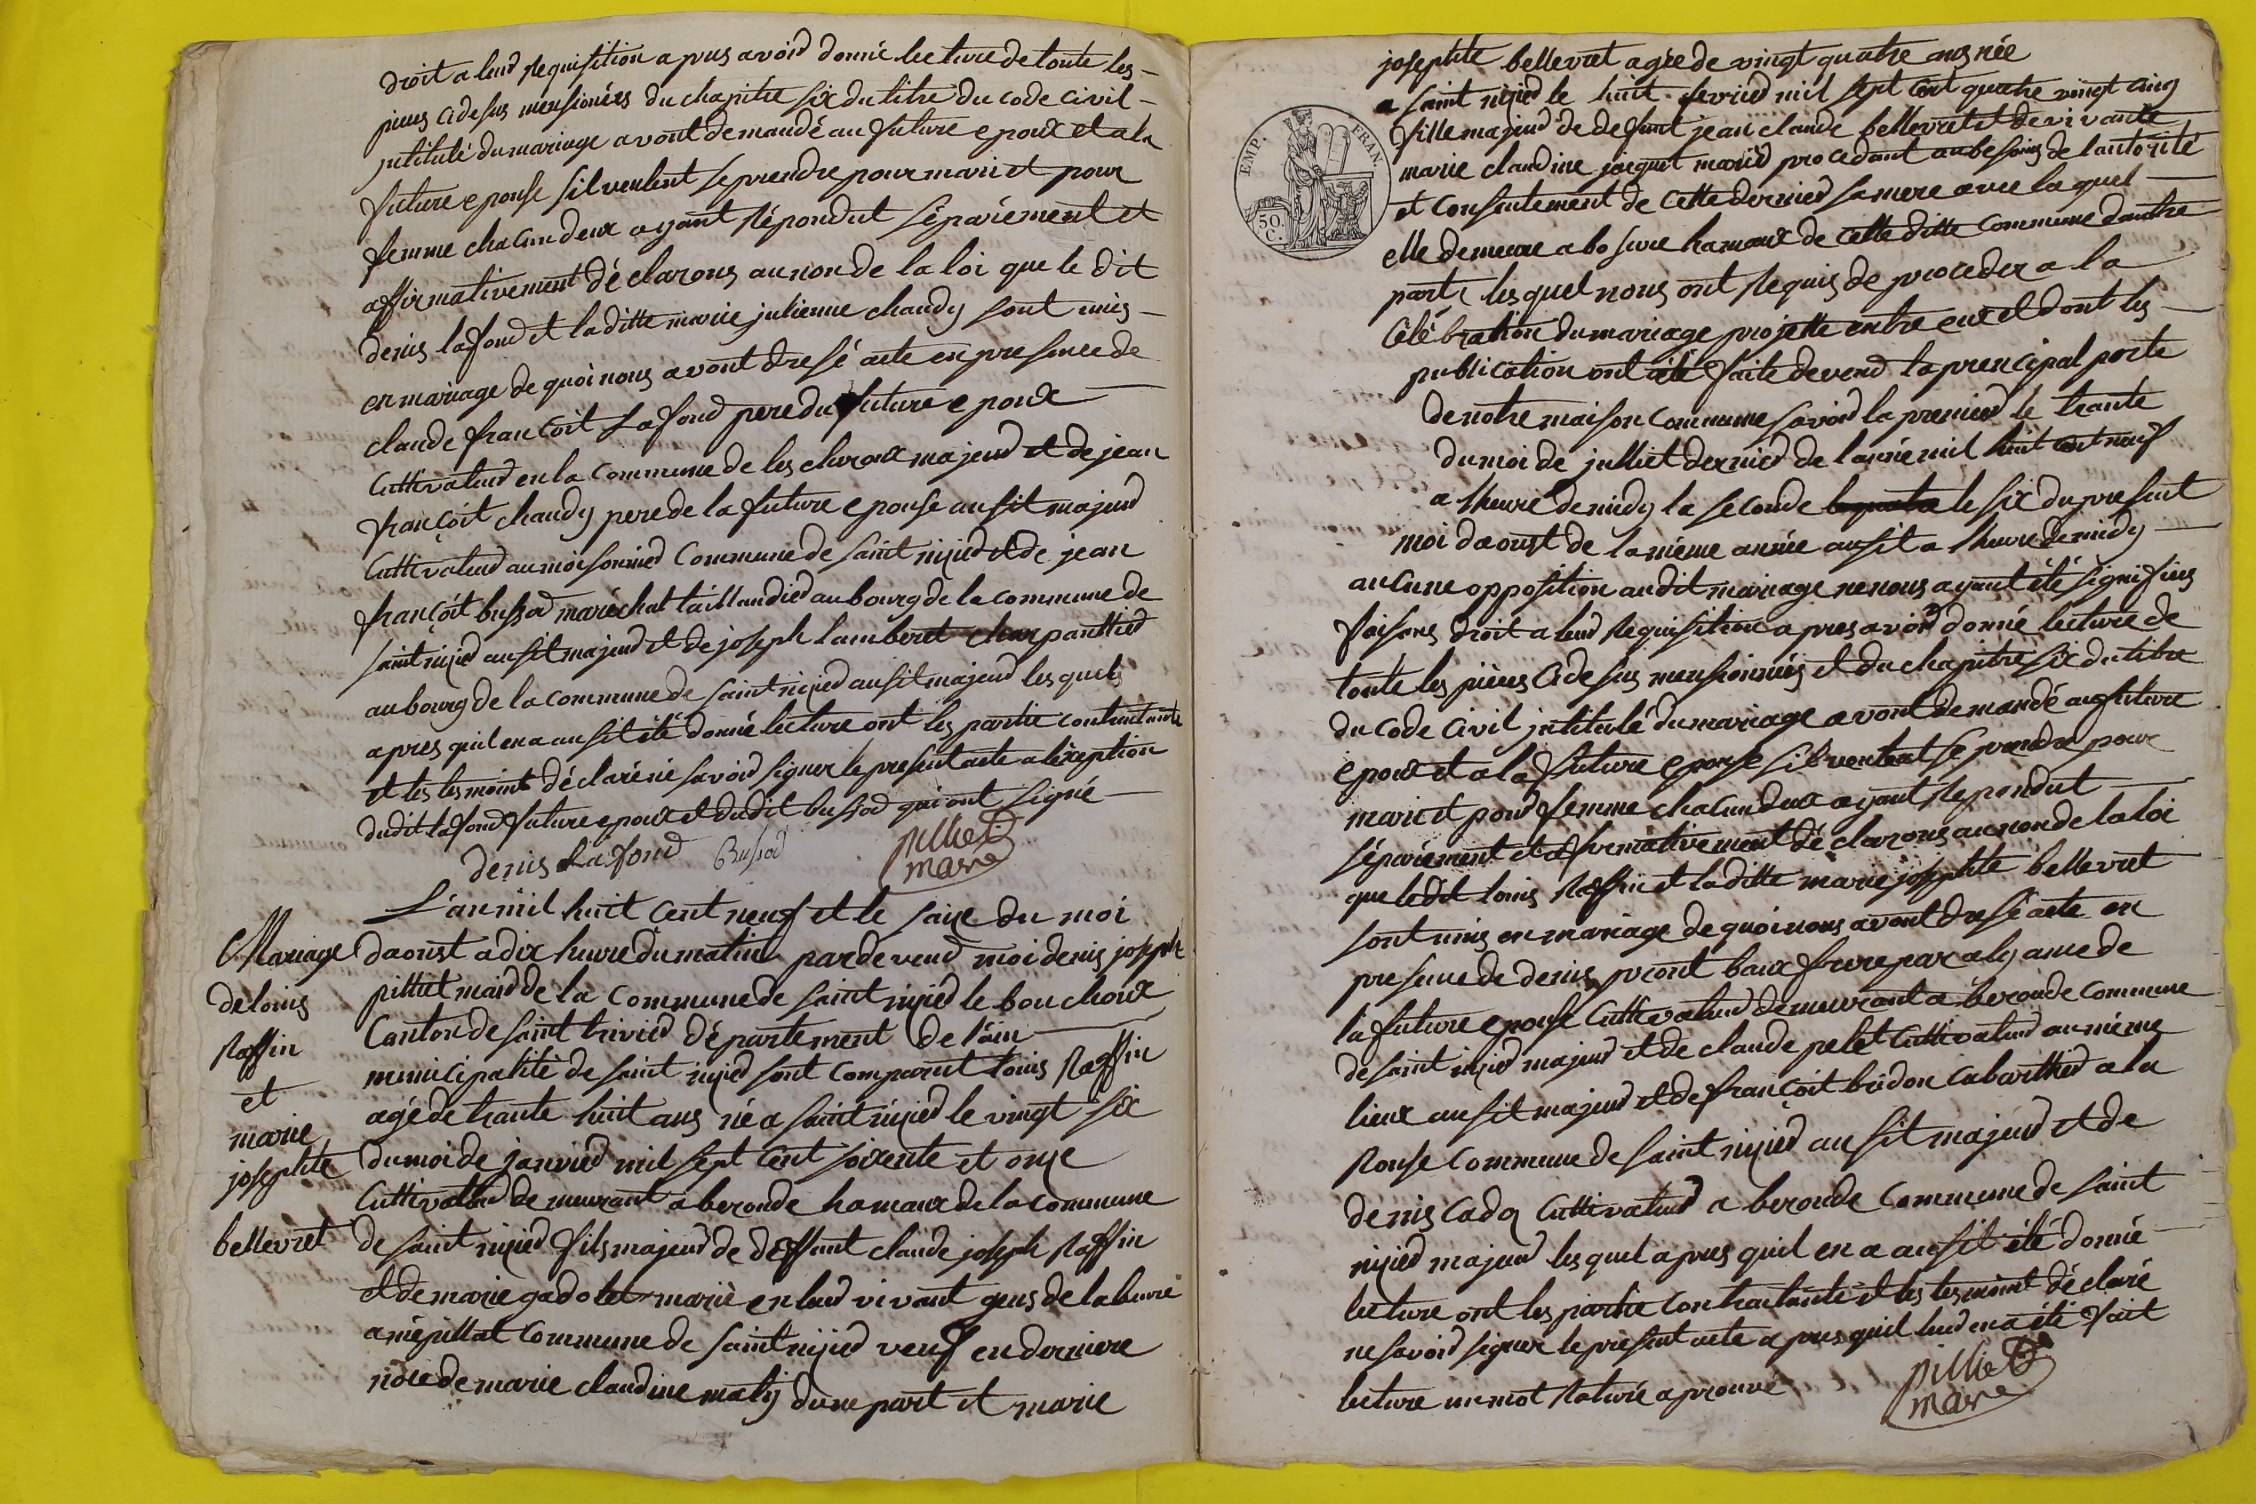 droit a leur requisition apres avoir donné lecture de toute les
pieces cidesus mensionées du chapitre six du titre du code civil
jntitulé du mariage avont demandé au future epoux et a la
future epouse sil veulent se prendre pour mari et pour
femme chacun deux ayant répondut séparément et
affirmativement déclarons au non de la loi que le dit
denis lafond et laditte marie julienne chaudy sont unis
en mariage de quoi nous avont dressé acte en presence de
claude françoit Lafond pere du future epoux
Cuttivateur en la commune de les cheroux majeur et de jean
françoit chaudy pere de la future epouse ausit majeur
Cuttivateur au moisonnier Commune de saint nijier et de jean
françoit bussod maréchal taillandier au bourg de la commune de
saint nijier ausit majeur et de joseph lamberet charpanttier
au bourg de la commune de saint nijier ausit majeur les quels
apres quil en a ausit été donné lecture ont les partie contractante
et les tesmoint déclaré ne savoir signer le present acte a lexeption
dudit lafond future epoux et dudit bussod qui ont signé
denis Lafond Bussod pilliet
mare
Mariage
de louis
Raffin
et
marie
josephte
bellevret
L'an mil huit cent neuf et le saize du moi
daoust a dix heure du matin pardeveud moi denis joseph
pilliet maire de la commune de saint nijier le bouchoux
Canton de saint trivier département de l'ain
municipalité de saint nijier sont comparut louis Raffin
agé de trante huit ans né a saint nijier le vingt six
du moi de janvier mil sept cent soixente et onze
Cuttivateur demeurant a beronde hameaux de la commune
de saint nijier fils majeur de deffunt claude joseph Raffin
et de marie gadolet marié en leur vivant gens de labeure
a mépillat commune de saint nijier veuf en derniere
noce de marie claudine maty dune part et marie
EMP. FRAN.
50.
C.
josephte bellevret agée de vingt quatre ans née
a saint nijier le huit fevrier mil sept cent quatre vingt cinq
fille majeur de defunt jean claude bellevret et de vivante
marie claudine jacquet marié procedant au besoins de lautorité
et consentement de cette dernier sa mere avec la quel
elle demeure a bosserre hameaux de cette ditte commune dautre
part lesquel nous ont requis de proceder a la
célébration du mariage projette entre eux et dont les
publication ont été faite deveud la prencipal porte
de notre maison commune savoir la premier le trante
du moi de julliet dernier de lanné mil huit cent neuf
a lheure de midy la seconde le six du present
moi daoust de la même année ausit a lheure de midy
aucune opposition audit mariage ne nous ayant été signifiés
faisons droit a leur requisition apres avoir donné lecture de
toute les pièces cidesus mensionnées et du chapitre six du titre
du code civil jntitulé du mariage avont demandé au future
epoux et a la future epouse sil veulent se prendre pour
mari et pour femme chacun deux ayant répondut
séparément et affirmativement déclarons au non de la loi
que ledit louis Raffin et laditte marie josephte bellevret
sont unis en mariage de quoi nous avont dressé acte en
presence de denis pront baux frere par alyance de
la future epouse Cuttivateur demeurant a beronde commune
de saint nijier majeur et de claude pelet Cuttivateur au même
lieux ausit majeur et de françoit bridon cabarttier a la
Rouse commune de saint nijier ausit majeur et de
denis cadoz Cuttivateur a beronde commune de saint
nijier majeur lesquel apres quil en a ausit été donné
lecture ont les partie contractante et les tesmoint déclaré
ne savoir signer le present acte apres quil leur en a été fait
lecture un mot raturé aprouvé pilliet
mare